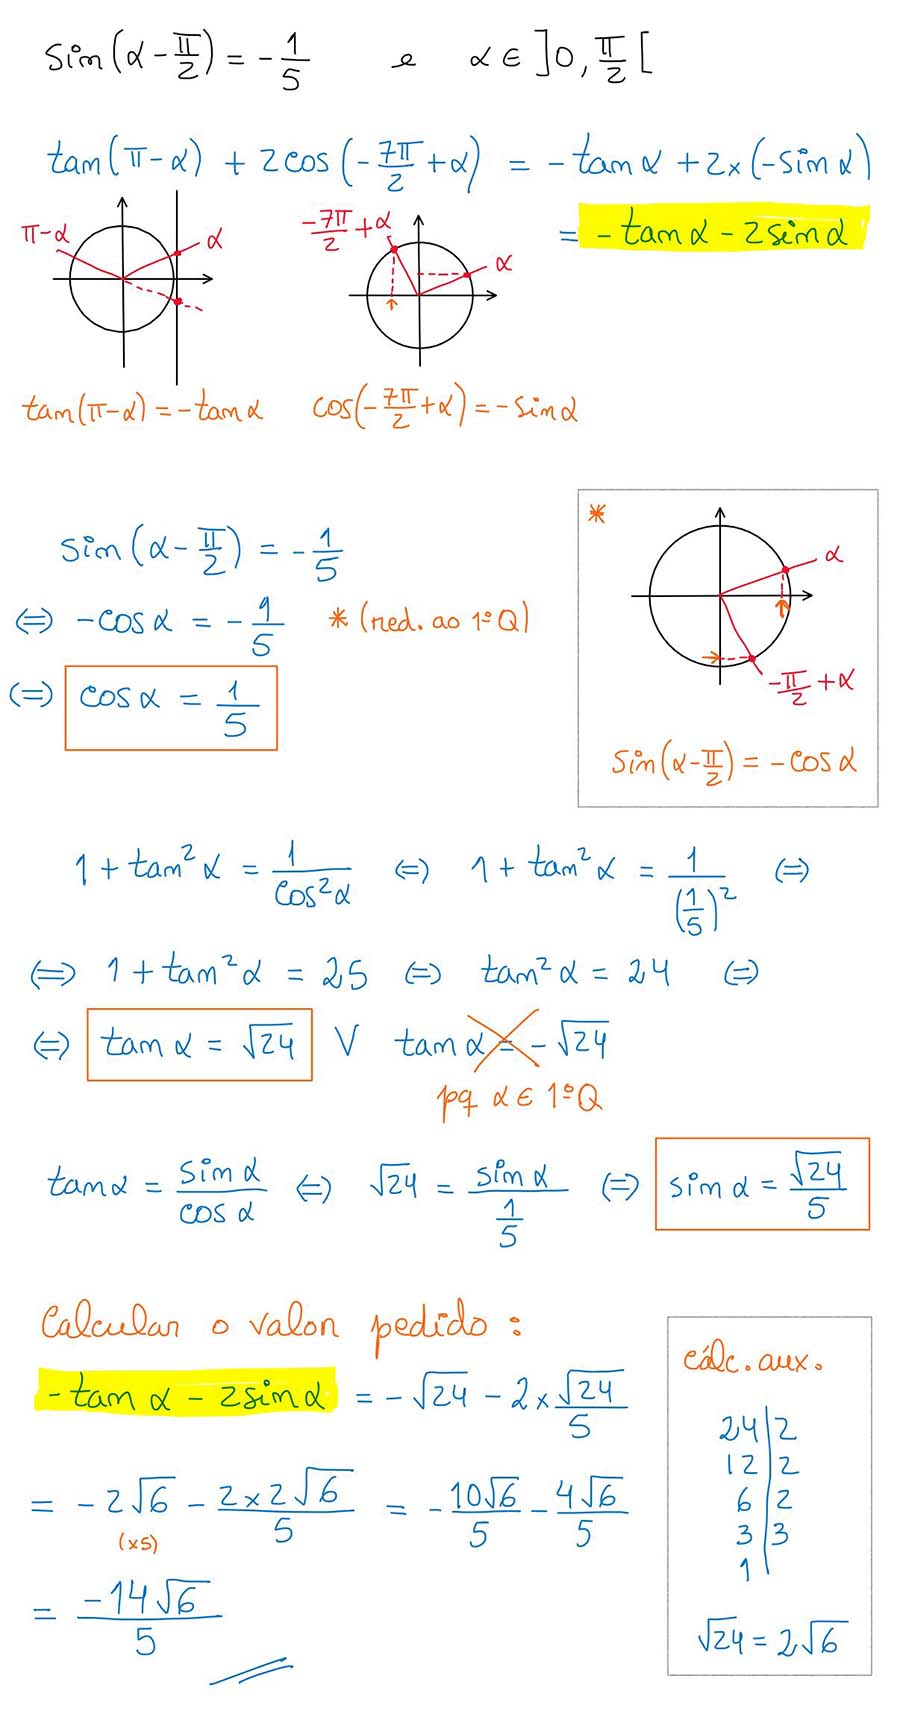 sin(α - π/2) = - 1/5 e α ∈ ]0, π/2[
tan(π-α) + 2cos(-7π/2 + α) = -tanα + 2×(-sinα)
= -tanα - 2sinα
π-α α
-7π/2 + α α
tan(π-α) = -tanα cos(-7π/2 + α) = -sinα
sin(α - π/2) = - 1/5
⇔ -cosα = - 1/5 * (red. ao 1ºQ)
⇔ cosα = 1/5
*
α
-π/2 + α
sin(α - π/2) = -cosα
1 + tan²α = 1/cos²α ⇔ 1 + tan²α = 1/(1/5)² ⇔
⇔ 1 + tan²α = 25 ⇔ tan²α = 24 ⇔
⇔ tanα = √24 V tanα = -√24
pq α ∈ 1ºQ
tanα = sinα/cosα ⇔ √24 = sinα/(1/5) ⇔ sinα = √24/5
Calcular o valor pedido:
-tanα - 2sinα = -√24 - 2×√24/5
= -2√6 - 2×2√6/5 = -10√6/5 - 4√6/5
(×5)
= -14√6/5
cálc. aux.
24|2
12|2
6|2
3|3
1|
√24 = 2√6